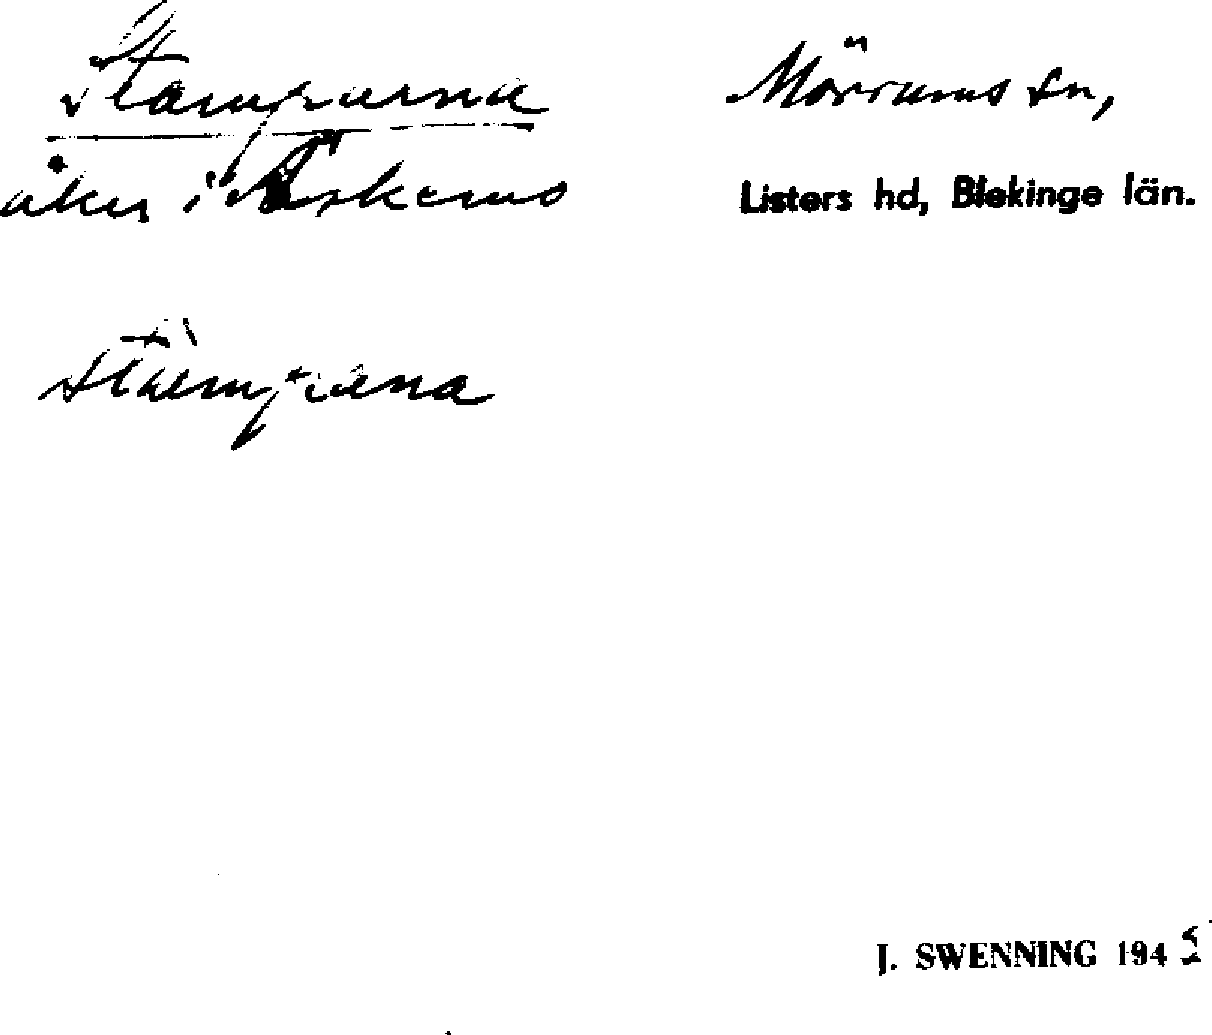 Stamparna
åker i Äskerums
Mörrums sn,
Listers hd, Blekinge län.
stàmpana
J. SWENNING 1945